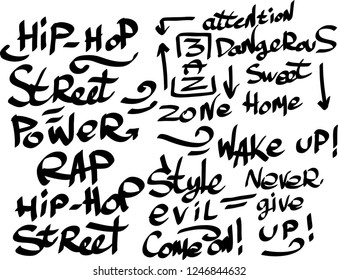 HiP-HOP
STReet
POWER
RAP
HiP-HOP
STReet
attention
DANGEROUS
MAN
Sweet
ZONE Home
WAKE UP!
Style Never
eviL give
Come on! UP!
shutterstock
IMAGE ID: 1246844632
www.shutterstock.com